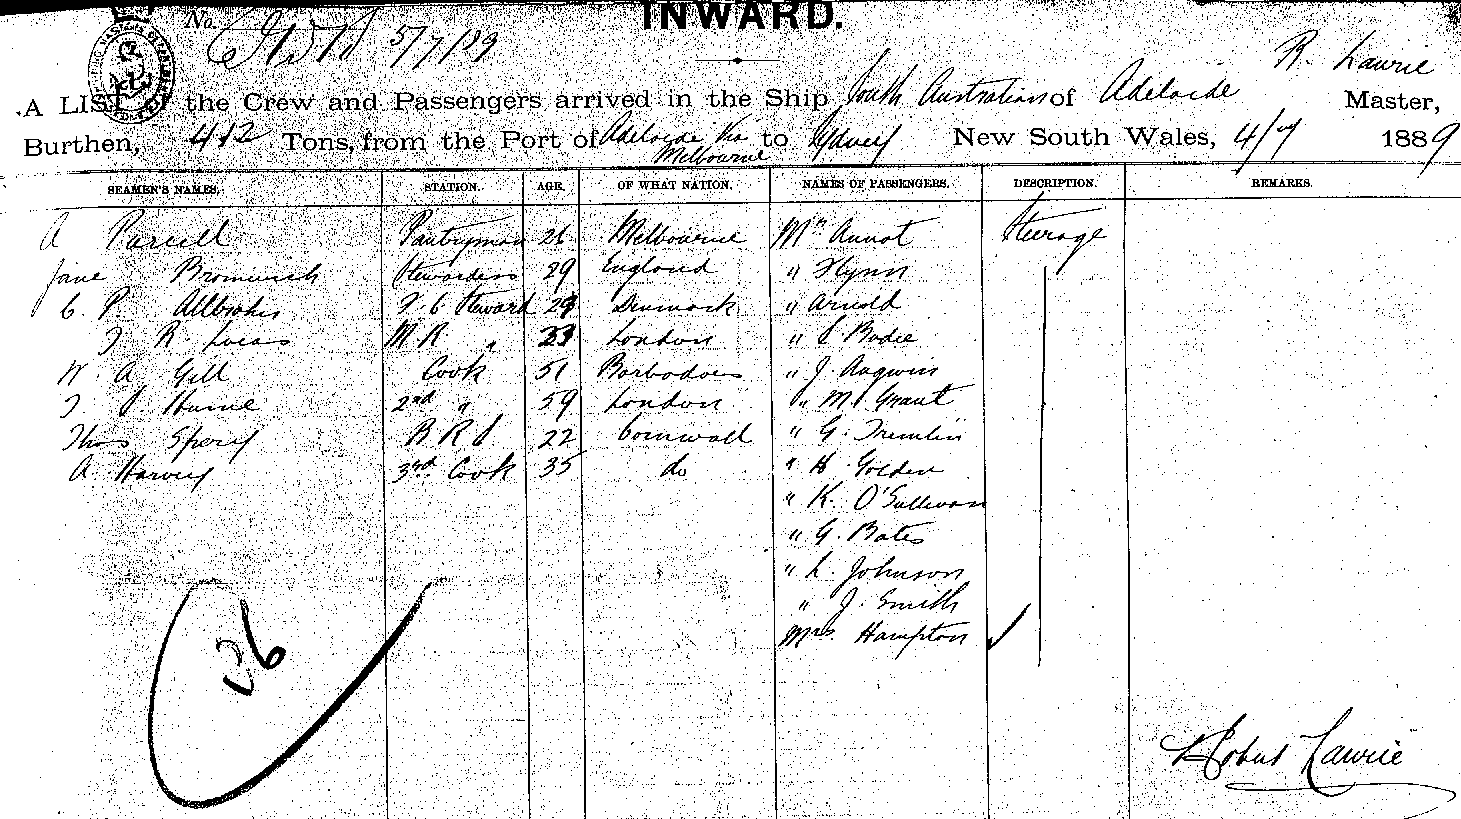 INWARD.
No. 5/7/89
R. Lawrie
A LIST of the Crew and Passengers arrived in the Ship South Australian of Adelaide Master,
Burthen, 412 Tons, from the Port of Adelaide Via Melbourne to Sydney New South Wales, 4/7 1889
SEAMEN'S NAMES. STATION. AGE. OF WHAT NATION. NAMES OF PASSENGERS. DESCRIPTION. REMARKS.
A Purcell Pantryman 26 Melbourne Mr Annot Steerage
Jane Bromwich Stewardess 29 England " Flynn
C. P. F. C Steward 29 Denmark " Arnold
J R. Lucas M R " 33 London " C Bodie
W. A Gill Cook 51 Barbadoes " J. Angwin
J Hume 2nd " 59 London " M Grant
Thos Spery B R S 22 Cornwall " G. Tremlin
A. Harvey 3rd Cook 35 do " H. Golden
" K. O'Sullivan
" G. Bates
" L. Johnson
" J. Smith
Mrs. Hampton
26
Lawrie